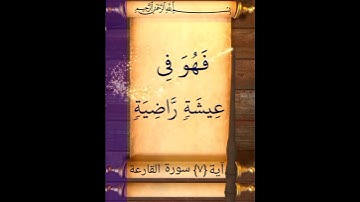 بِسْمِ اللَّهِ الرَّحْمَٰنِ الرَّحِيمِ
فَهُوَ فِى
عِيشَةٍ رَّاضِيَةٍ
آية {٧} سورة القارعة